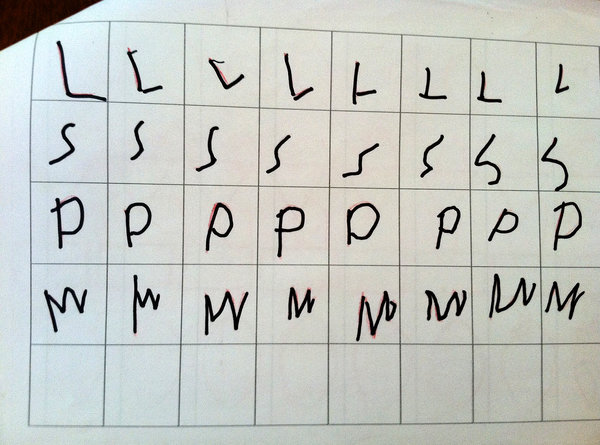 L L L L L L L L
S S S S S S S S
P P P P P P P P
M M M M M M M M